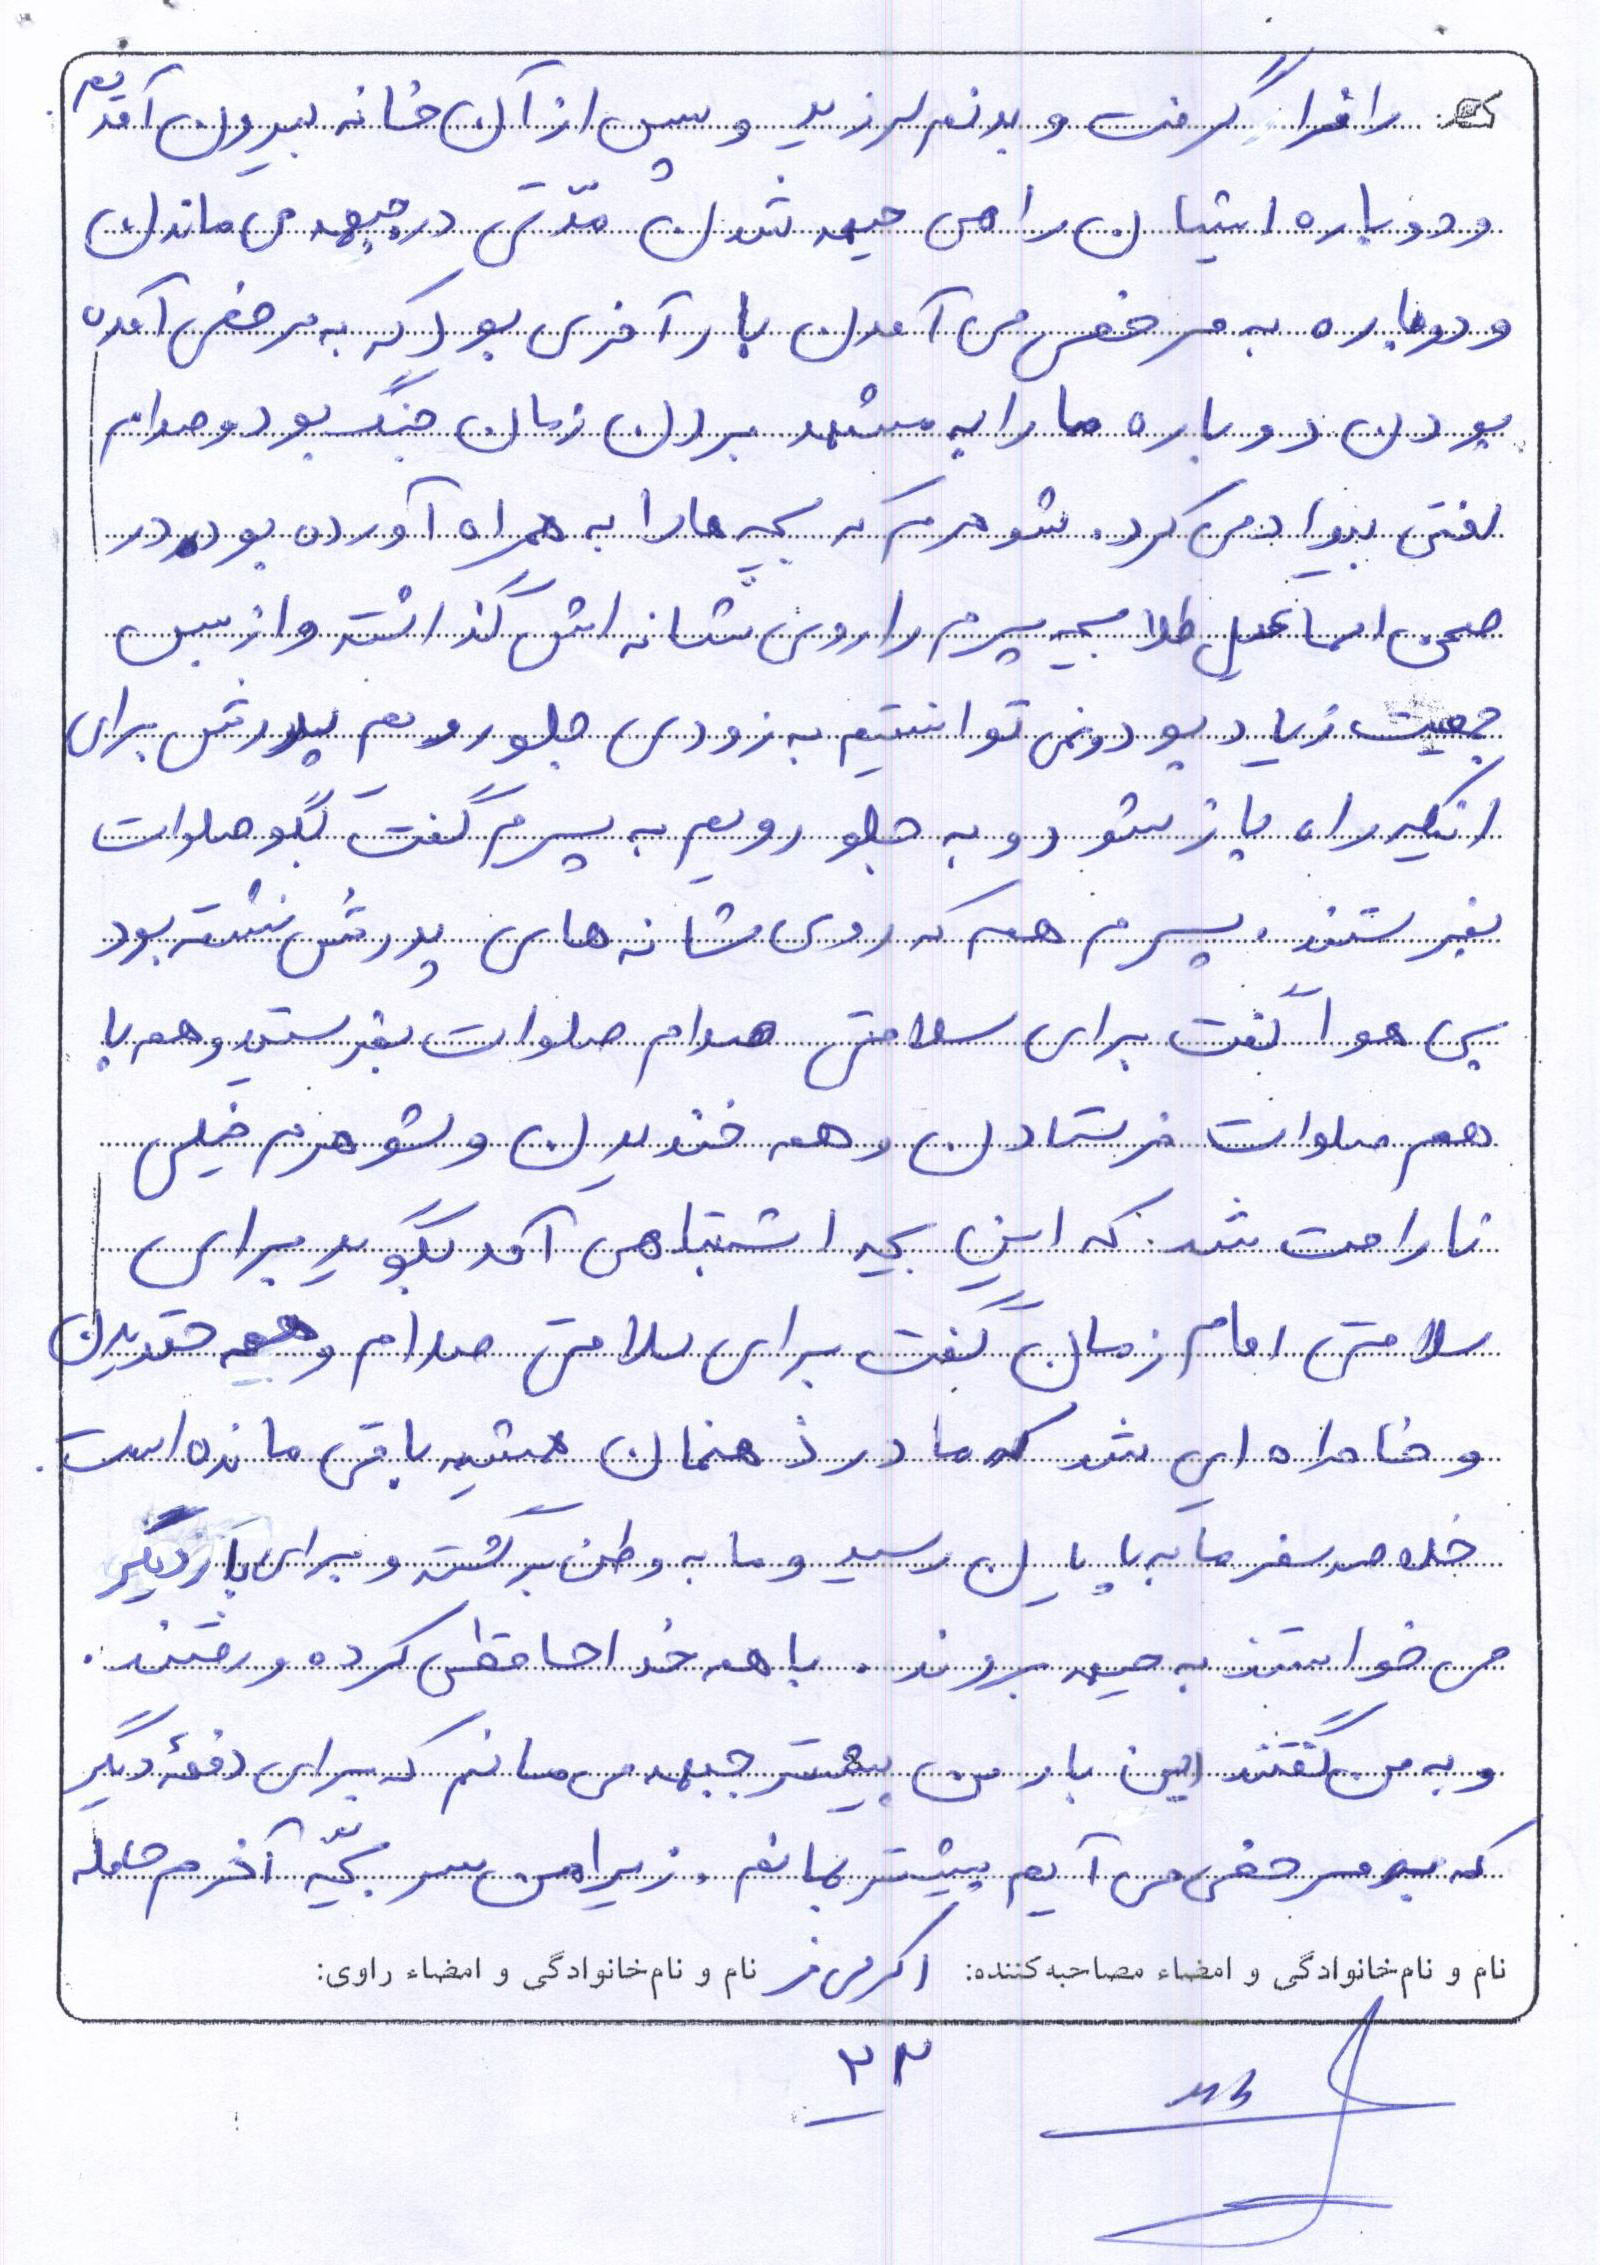 را فرا گرفت و بدنم لرزید و سپس از آن خانه بیرون آمدیم
و دوباره ایشان راهی جبهه شدن مدّتی در جبهه می ماندن
و دوباره به مرخصی می آمدن بار آخری بود که به مرخصی آمده
بودن دوباره ما را به مشهد بردن زمان جنگ بود و صدام
لعنتی بیداد می کرد. شوهرم که بچه ها را به همراه آورده بود در
صحن اسماعیل طلا بچه پسرم را روی شانه اش گذاشته و از بس
جمعیت زیاد بود نمی توانستیم به زودی جلو رویم پدرش برای
اینکه راه باز شود و به جلو رویم به پسرم گفت بگو صلوات
بفرستند. پسرم هم که روی شانه های پدرش نشسته بود
بی هوا گفت برای سلامتی صدام صلوات بفرستید و همه با
هم صلوات فرستادن و همه خندیدن و شوهرم خیلی
ناراحت شد. که این بچه اشتباهی آمد بگوید برای
سلامتی امام زمان گفت برای سلامتی صدام و همه خندیدن
و خاطره ای شد که ما در ذهنمان همیشه باقی مانده است.
خلاصه سفر ما به پایان رسید و ما به وطن برگشته و برای بار دیگر
می خواستند به جبهه بروند. با همه خداحافظی کرده و رفتند.
و به من گفتند این بار من بیشتر جبهه می مانم که برای دفعهٔ دیگر
که به مرخصی می آیم بیشتر بمانم. زیرا من سر بچّه آخرم حامله
نام و نام خانوادگی و امضاء مصاحبه کننده: اکرمی فر نام و نام خانوادگی و امضاء راوی:
۲۳